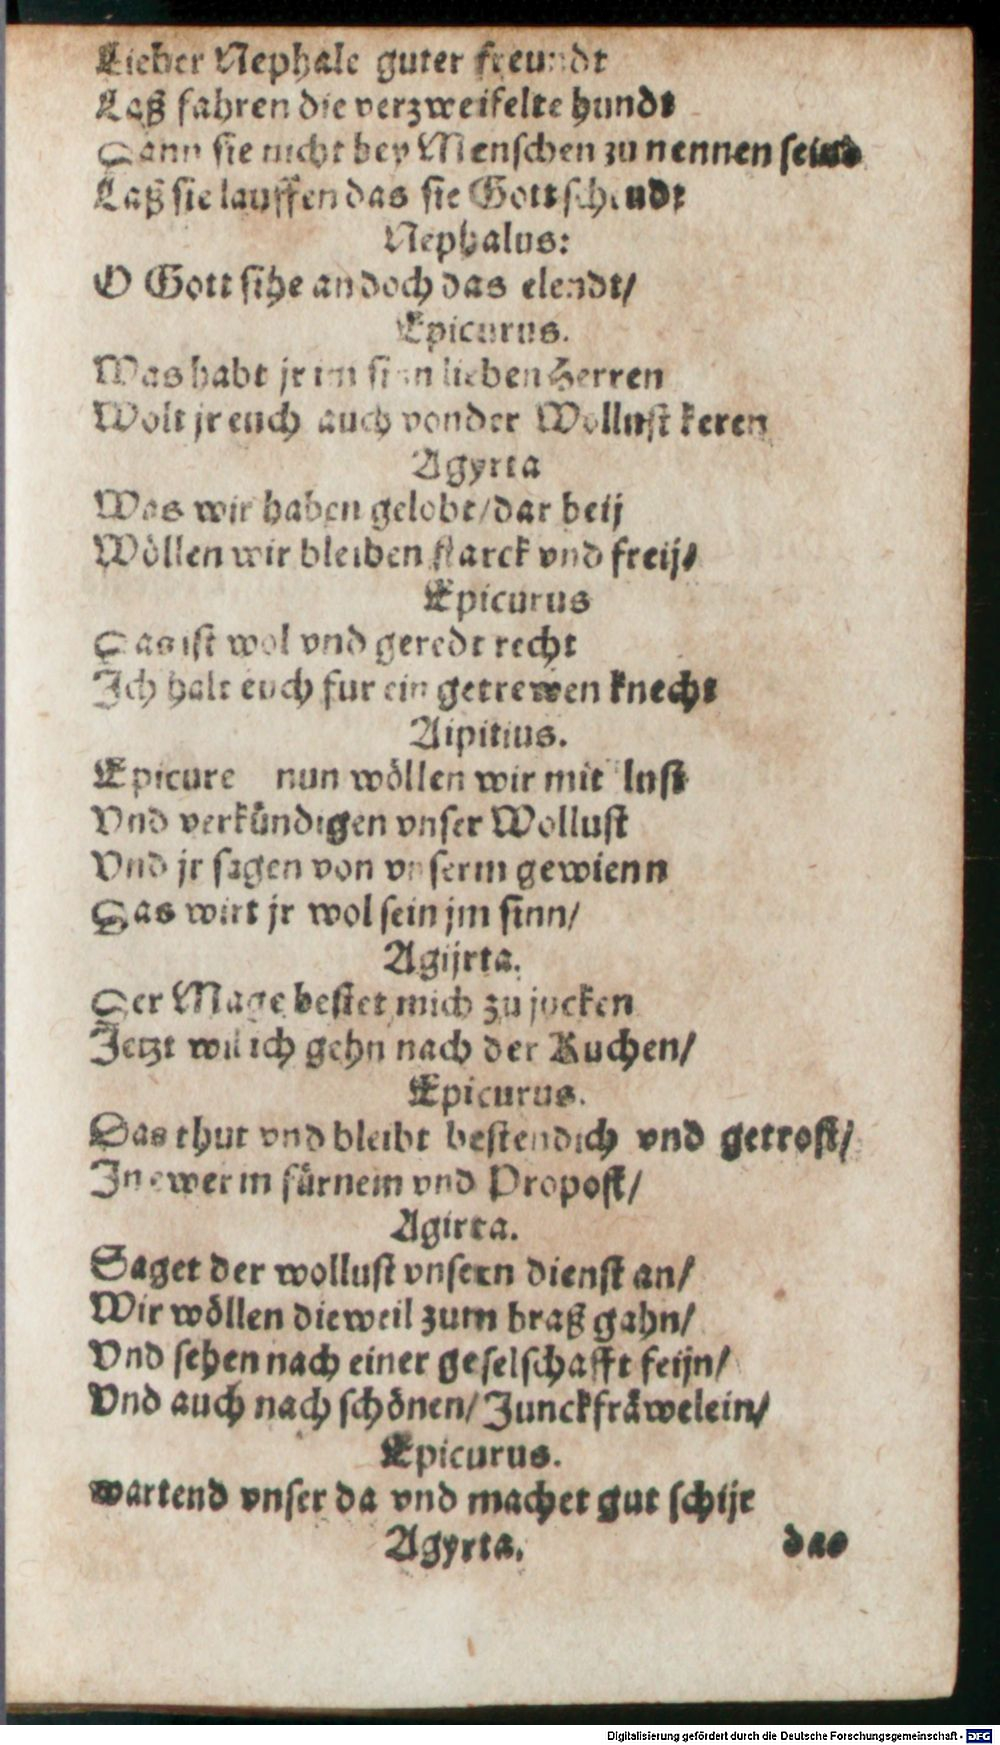 Lieber Nephale guter freundt
Laß fahren die verzweifelte hundt
Dann sie nicht bey Menschen zu nennen seind
Laß sie lauffen das sie Gott schendt
Nephalus:
O Gott sihe an doch das elendt/
Epicurus.
Was habt jr im sinn lieben Herren
Wolt jr euch auch von der Wollust keren
Agyrta
Was wir haben gelobt/dar beij
Wöllen wir bleiben starck vnd freij/
Epicurus
Das ist wol vnd geredt recht
Ich halt euch fur ein getrewen knecht
Aipitius.
Epicure nun wöllen wir mit lust
Vnd verkündigen vnser Wollust
Vnd jr sagen von vnserm gewienn
Das wirt jr wol sein jm sinn/
Agijrta.
Der Mage bestet mich zu jucken
Jetzt wil ich gehn nach der Kuchen/
Epicurus.
Das thut vnd bleibt bestendich vnd getrost/
In ewerm fürnem vnd Propost/
Agirta.
Saget der wollust vnsern dienst an/
Wir wöllen dieweil zum braß gahn/
Vnd sehen nach einer geselschafft feijn/
Vnd auch nach schönen/Junckfräwelein/
Epicurus.
wartend vnser da vnd machet gut schijr
Agyrta. das
Digitalisierung gefördert durch die Deutsche Forschungsgemeinschaft - DFG